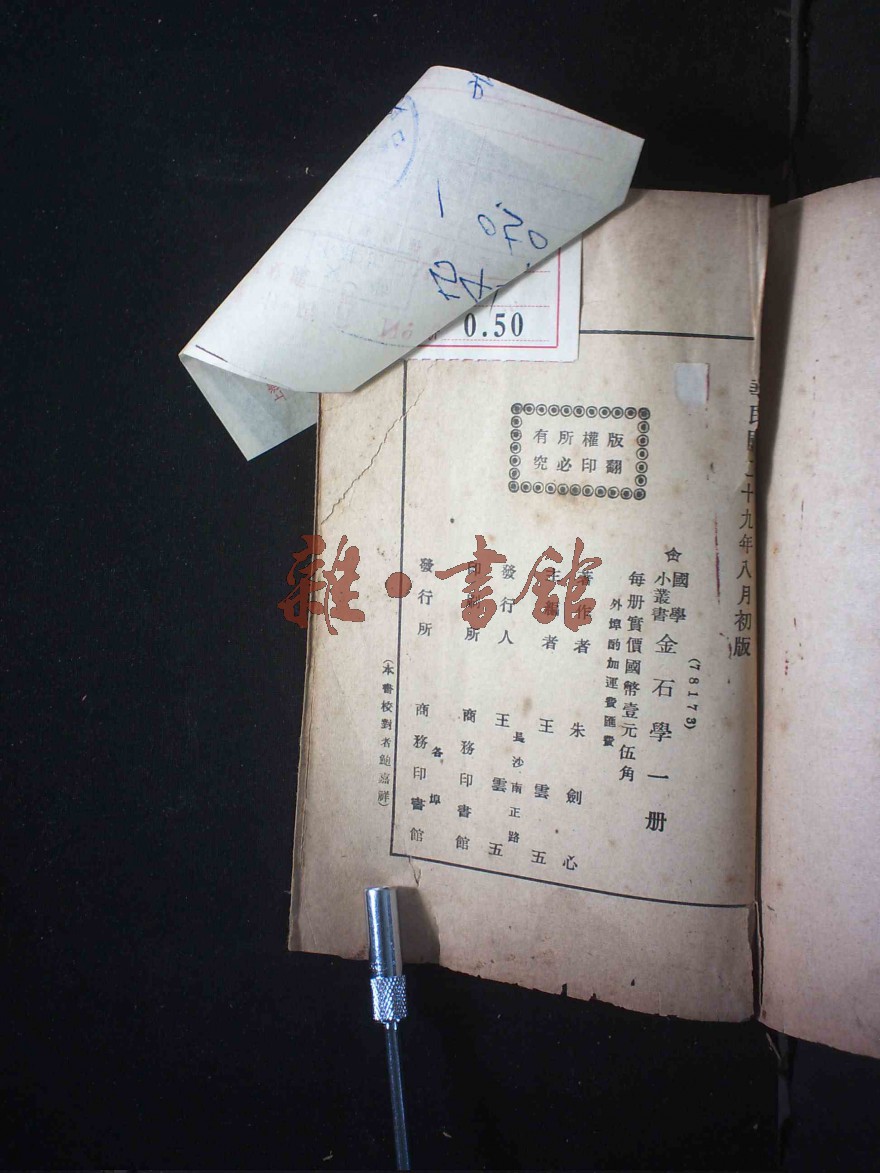 華民國二十九年八月初版
(78173)
國學
小叢書
金石學一册
每册實價國幣壹元伍角
外埠酌加運費匯費
著作者 朱劍心
主編者 王雲五
長沙南正路
發行人 王雲五
印刷所 商務印書館
各埠
發行所 商務印書館
(本書校對者鮑嘉祥)
版權所有
翻印必究
0.50
雜·書館